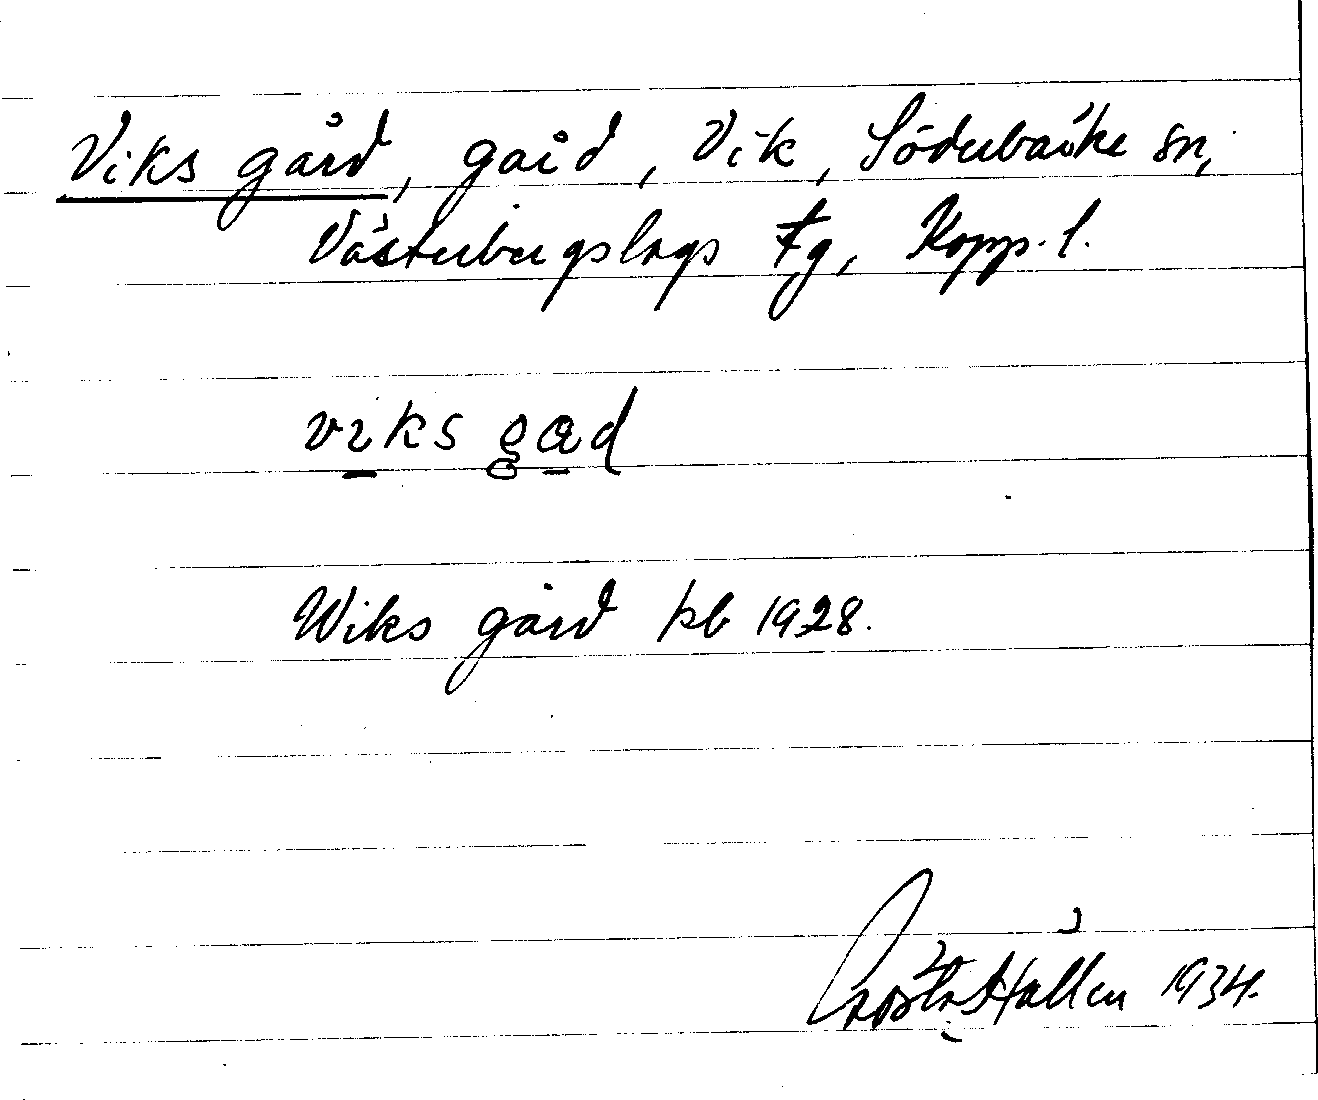 Viks gård, gård, Vik, Söderbärke sn,
Västerbergslags fg, Kopp. l.
viks gad
Wiks gård kb 1928.
Gösta Hållén 1934.